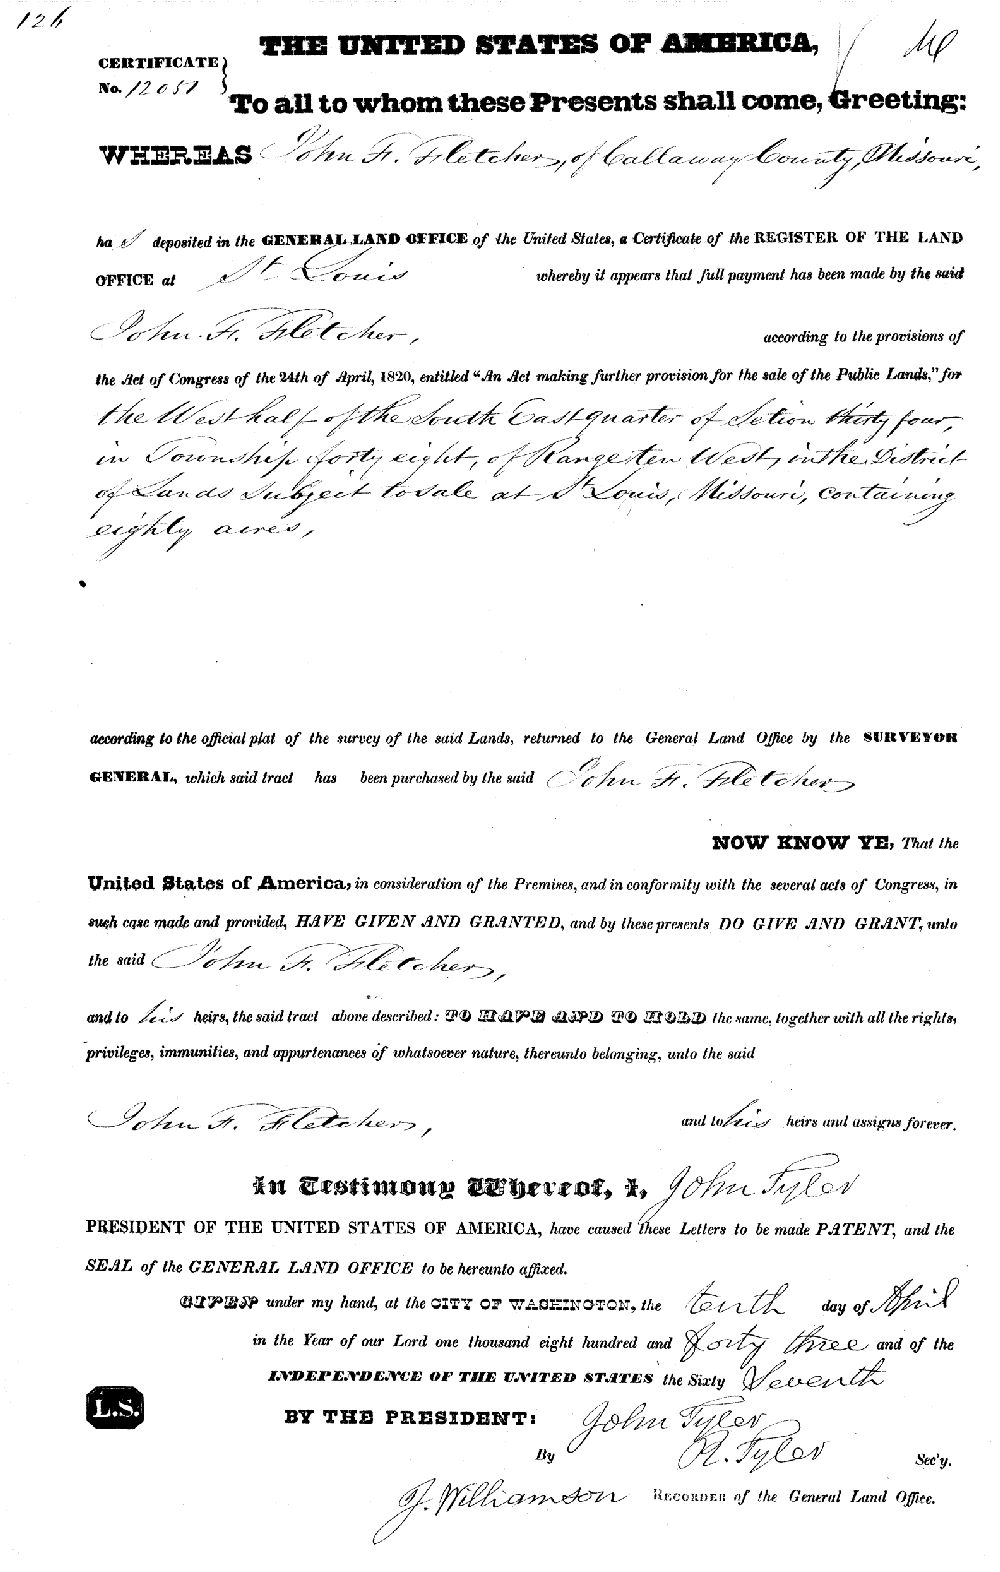 126
THE UNITED STATES OF AMERICA,
CERTIFICATE
No. 12051
To all to whom these Presents shall come, Greeting:
WHEREAS John F. Fletcher, of Callaway County, Missouri,
has deposited in the GENERAL LAND OFFICE of the United States, a Certificate of the REGISTER OF THE LAND
OFFICE at St Louis whereby it appears that full payment has been made by the said
John F. Fletcher, according to the provisions of
the Act of Congress of the 24th of April, 1820, entitled "An Act making further provision for the sale of the Public Lands," for
the West half of the South East quarter of Setion thirty four,
in Township forty eight, of Range ten West, in the District
of Lands Subject to sale at St Louis, Missouri, containing
eighty acres,
according to the official plat of the survey of the said Lands, returned to the General Land Office by the SURVEYOR
GENERAL, which said tract has been purchased by the said John F. Fletcher
NOW KNOW YE, That the
United States of America, in consideration of the Premises, and in conformity with the several acts of Congress, in
such case made and provided, HAVE GIVEN AND GRANTED, and by these presents DO GIVE AND GRANT, unto
the said John F. Fletcher,
and to his heirs, the said tract above described: TO HAVE AND TO HOLD the same, together with all the rights,
privileges, immunities, and appurtenances of whatsoever nature, thereunto belonging, unto the said
John F. Fletcher, and to his heirs and assigns forever.
In Testimony Whereof, I, John Tyler
PRESIDENT OF THE UNITED STATES OF AMERICA, have caused these Letters to be made PATENT, and the
SEAL of the GENERAL LAND OFFICE to be hereunto affixed.
GIVEN under my hand, at the CITY OF WASHINGTON, the tenth day of April
in the Year of our Lord one thousand eight hundred and forty three and of the
INDEPENDENCE OF THE UNITED STATES the Sixty Seventh
L.S.
BY THE PRESIDENT: John Tyler
By R. Tyler Sec'y.
J. Williamson RECORDER of the General Land Office.